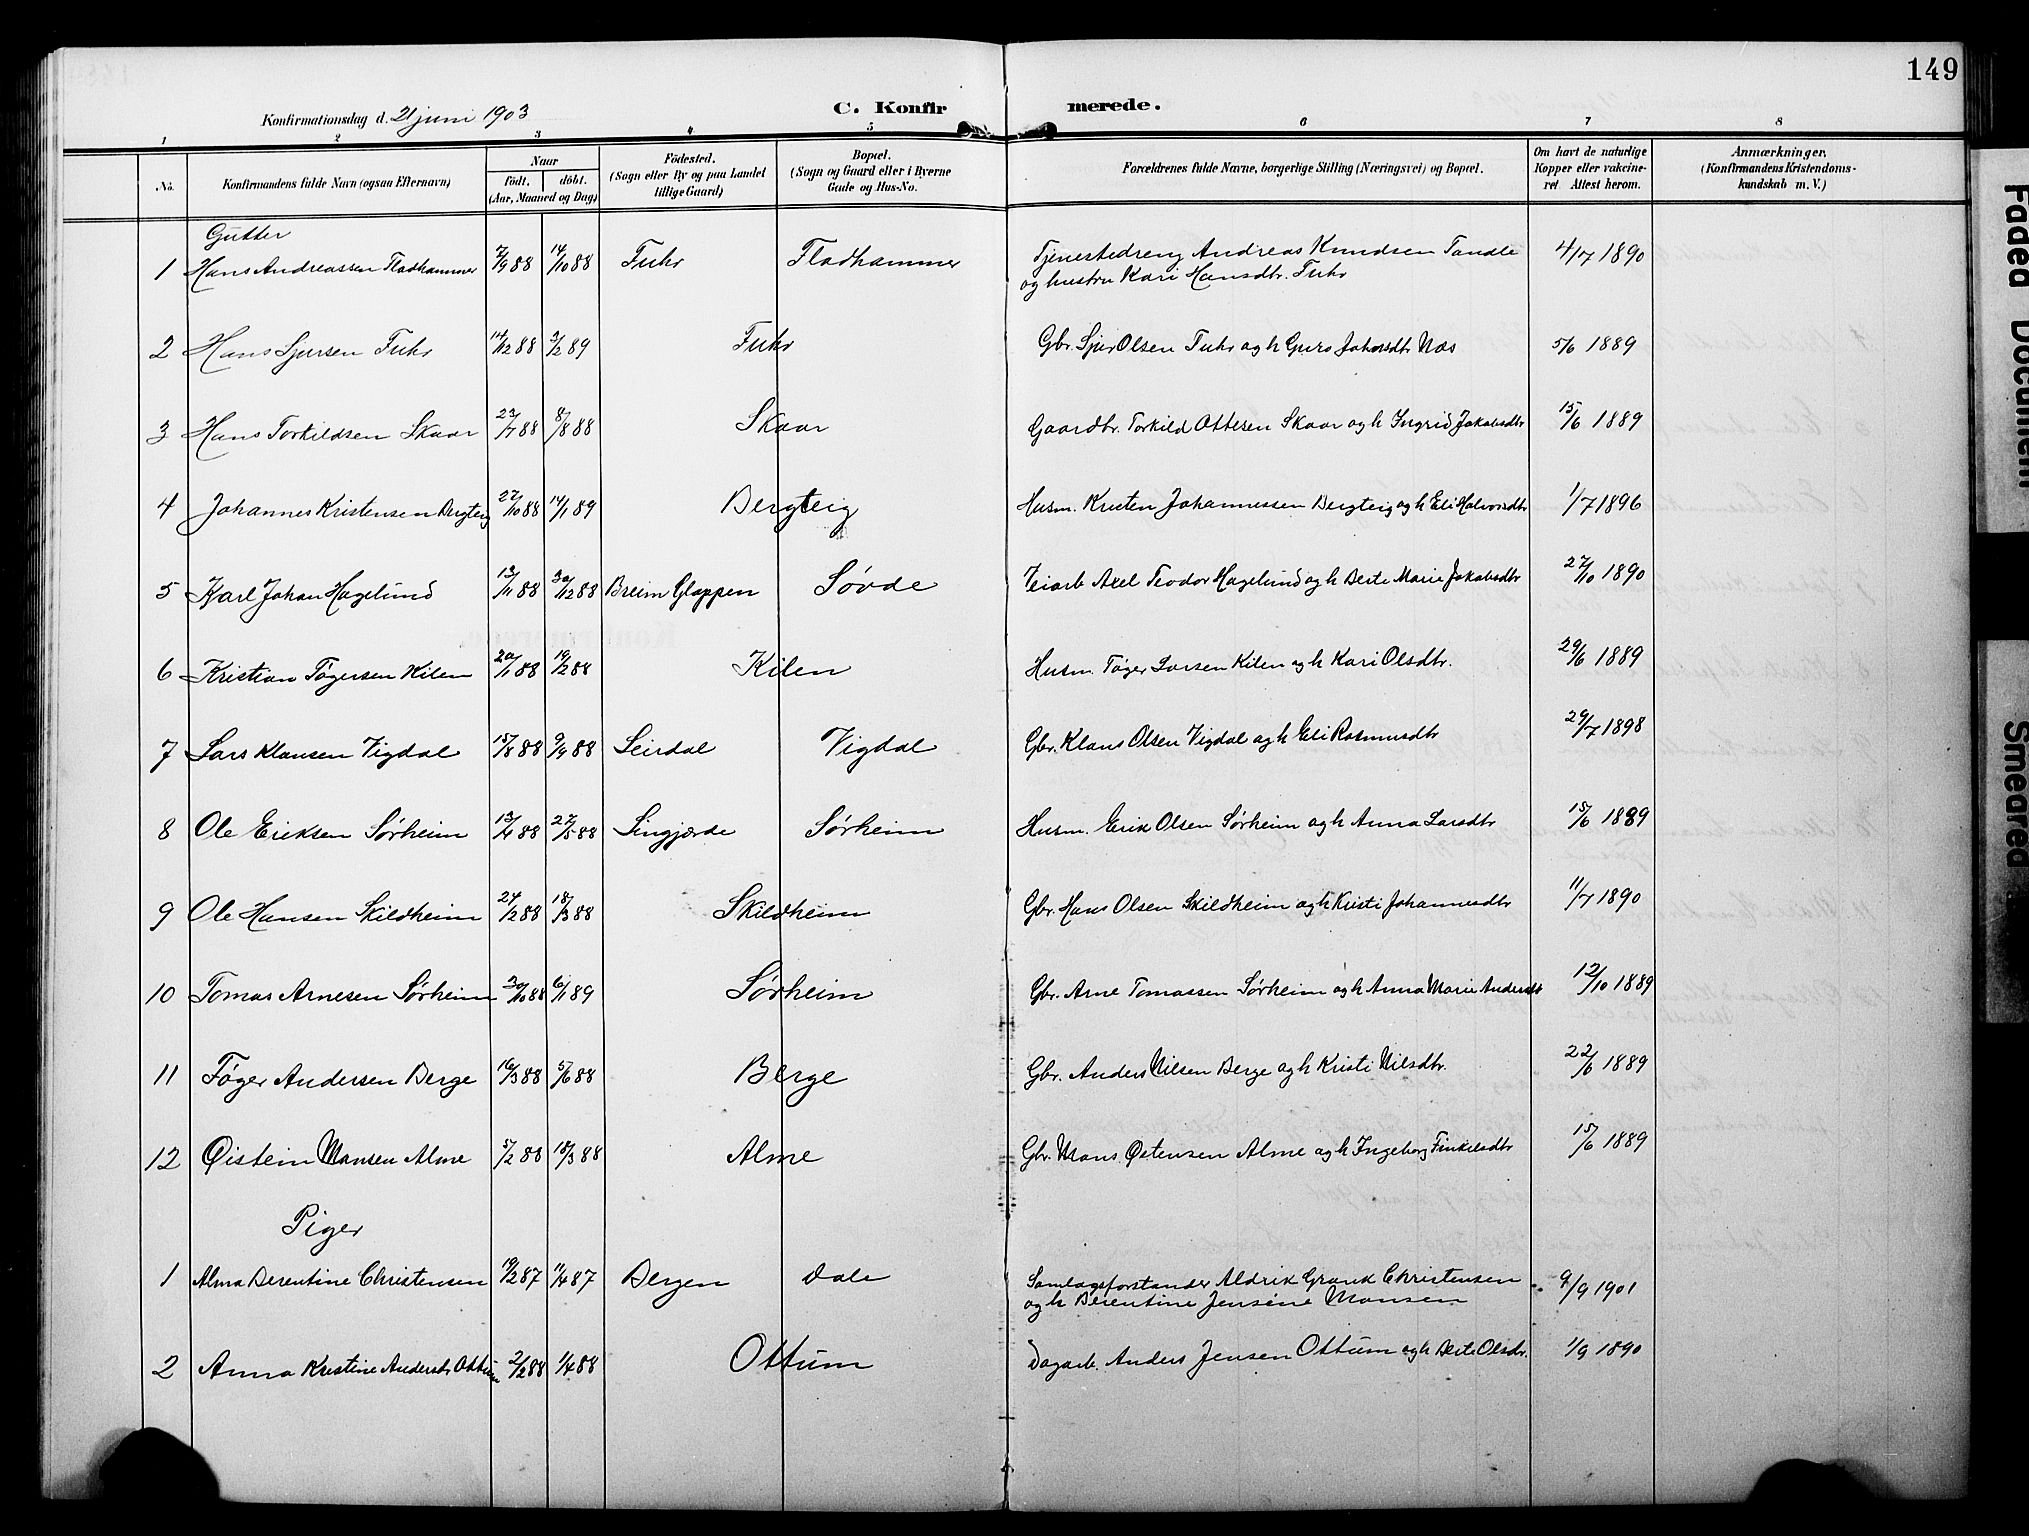 149
Konfirmationsdag d. 21 juni 1903
C. Konfirmerede.
1 2 3 4 5 6 7 8
No. Konfirmandens fulde Navn (ogsaa Efternavn) Naar Födt, döbt. (Aar, Maaned og Dag) Födested. (Sogn eller By og paa Landet tillige Gaard) Bopæl. (Sogn og Gaard eller i Byerne Gade og Hus-No. Forældrenes fulde Navne, borgerlige Stilling (Næringsvei) og Bopæl. Om havt de naturlige Kopper eller vakcineret Attest herom. Anmærkninger. (Konfirmandens Kristendomskundskab m. V.)
Gutter
1 Hans Andreassen Fladhammer 7/9 88 14/10 88 Fuhr Fladhammer Tjenestedreng Andreas Knudsen Tandle 4/7 1890
og hustru Kari Hansdtr. Fuhr
2 Hans Sjursen Fuhr 14/12 88 3/2 89 Fuhr Gbr. Sjur Olsen Fuhr og h Guro Johnsdtr Næs 5/6 1889
3 Hans Torkildsen Skaar 23/7 88 8/8 88 Skaar Gaardbr. Torkild Ottesen Skaar og h Ingrid Jakobsdtr 15/6 1889
4 Johannes Kristensen Bergteig 27/10 88 14/1 89 Bergteig Husm. Kristen Johannessen Bergteig og h Eli Halvorsdtr 1/7 1896
5 Karl Johan Hagelund 13/11 88 30/12 88 Breim Gloppen Søvde Veiarb Axel Teodor Hagelund og h Berte Marie Jakobsdtr 27/10 1890
6 Kristian Tøgersen Kilen 20/1 88 19/2 88 Kilen Husm. Tøger Larsen Kilen og h Kari Olsdtr. 29/6 1889
7 Lars Klausen Vigdal 15/8 88 9/9 88 Leirdal Vigdal Gbr. Klaus Olsen Vigdal og h Eli Rasmusdtr 29/7 1898
8 Ole Eriksen Sørheim 13/4 88 27/5 88 Lingjærde Sørheim Husm. Erik Olsen Sørheim og h Anna Larsdtr 15/6 1889
9 Ole Hansen Skildheim 24/2 88 18/3 88 Skildheim Gbr. Hans Olsen Skildheim og h Kristi Johannesdtr 11/7 1890
10 Tomas Arnesen Sørheim 30/10 88 6/1 89 Sørheim Gbr. Arne Tomassen Sørheim og h Anna Marie Andersdt 12/10 1889
11 Tøger Andersen Berge 16/3 88 3/6 88 Berge Gbr. Anders Nilsen Berge og h Kristi Nilsdtr. 22/6 1889
12 Øistein Monsen Alme 5/2 88 18/3 88 Alme Gbr. Mons Østensen Alme og h Ingeborg Finkelsdtr 15/6 1889
Piger
1 Alma Berentine Christensen 19/2 87 11/4 87 Bergen Dale Samlagsforstander Aldrik Grønk Christensen 9/9 1901
og h Berentine Jensine Monsen
2 Anna Kristine Andersdtr Ottum 2/2 88 1/4 88 Ottum Dagarb. Anders Jensen Ottum og h Berte Olsdtr. 1/9 1890
Faded Document
Smeared